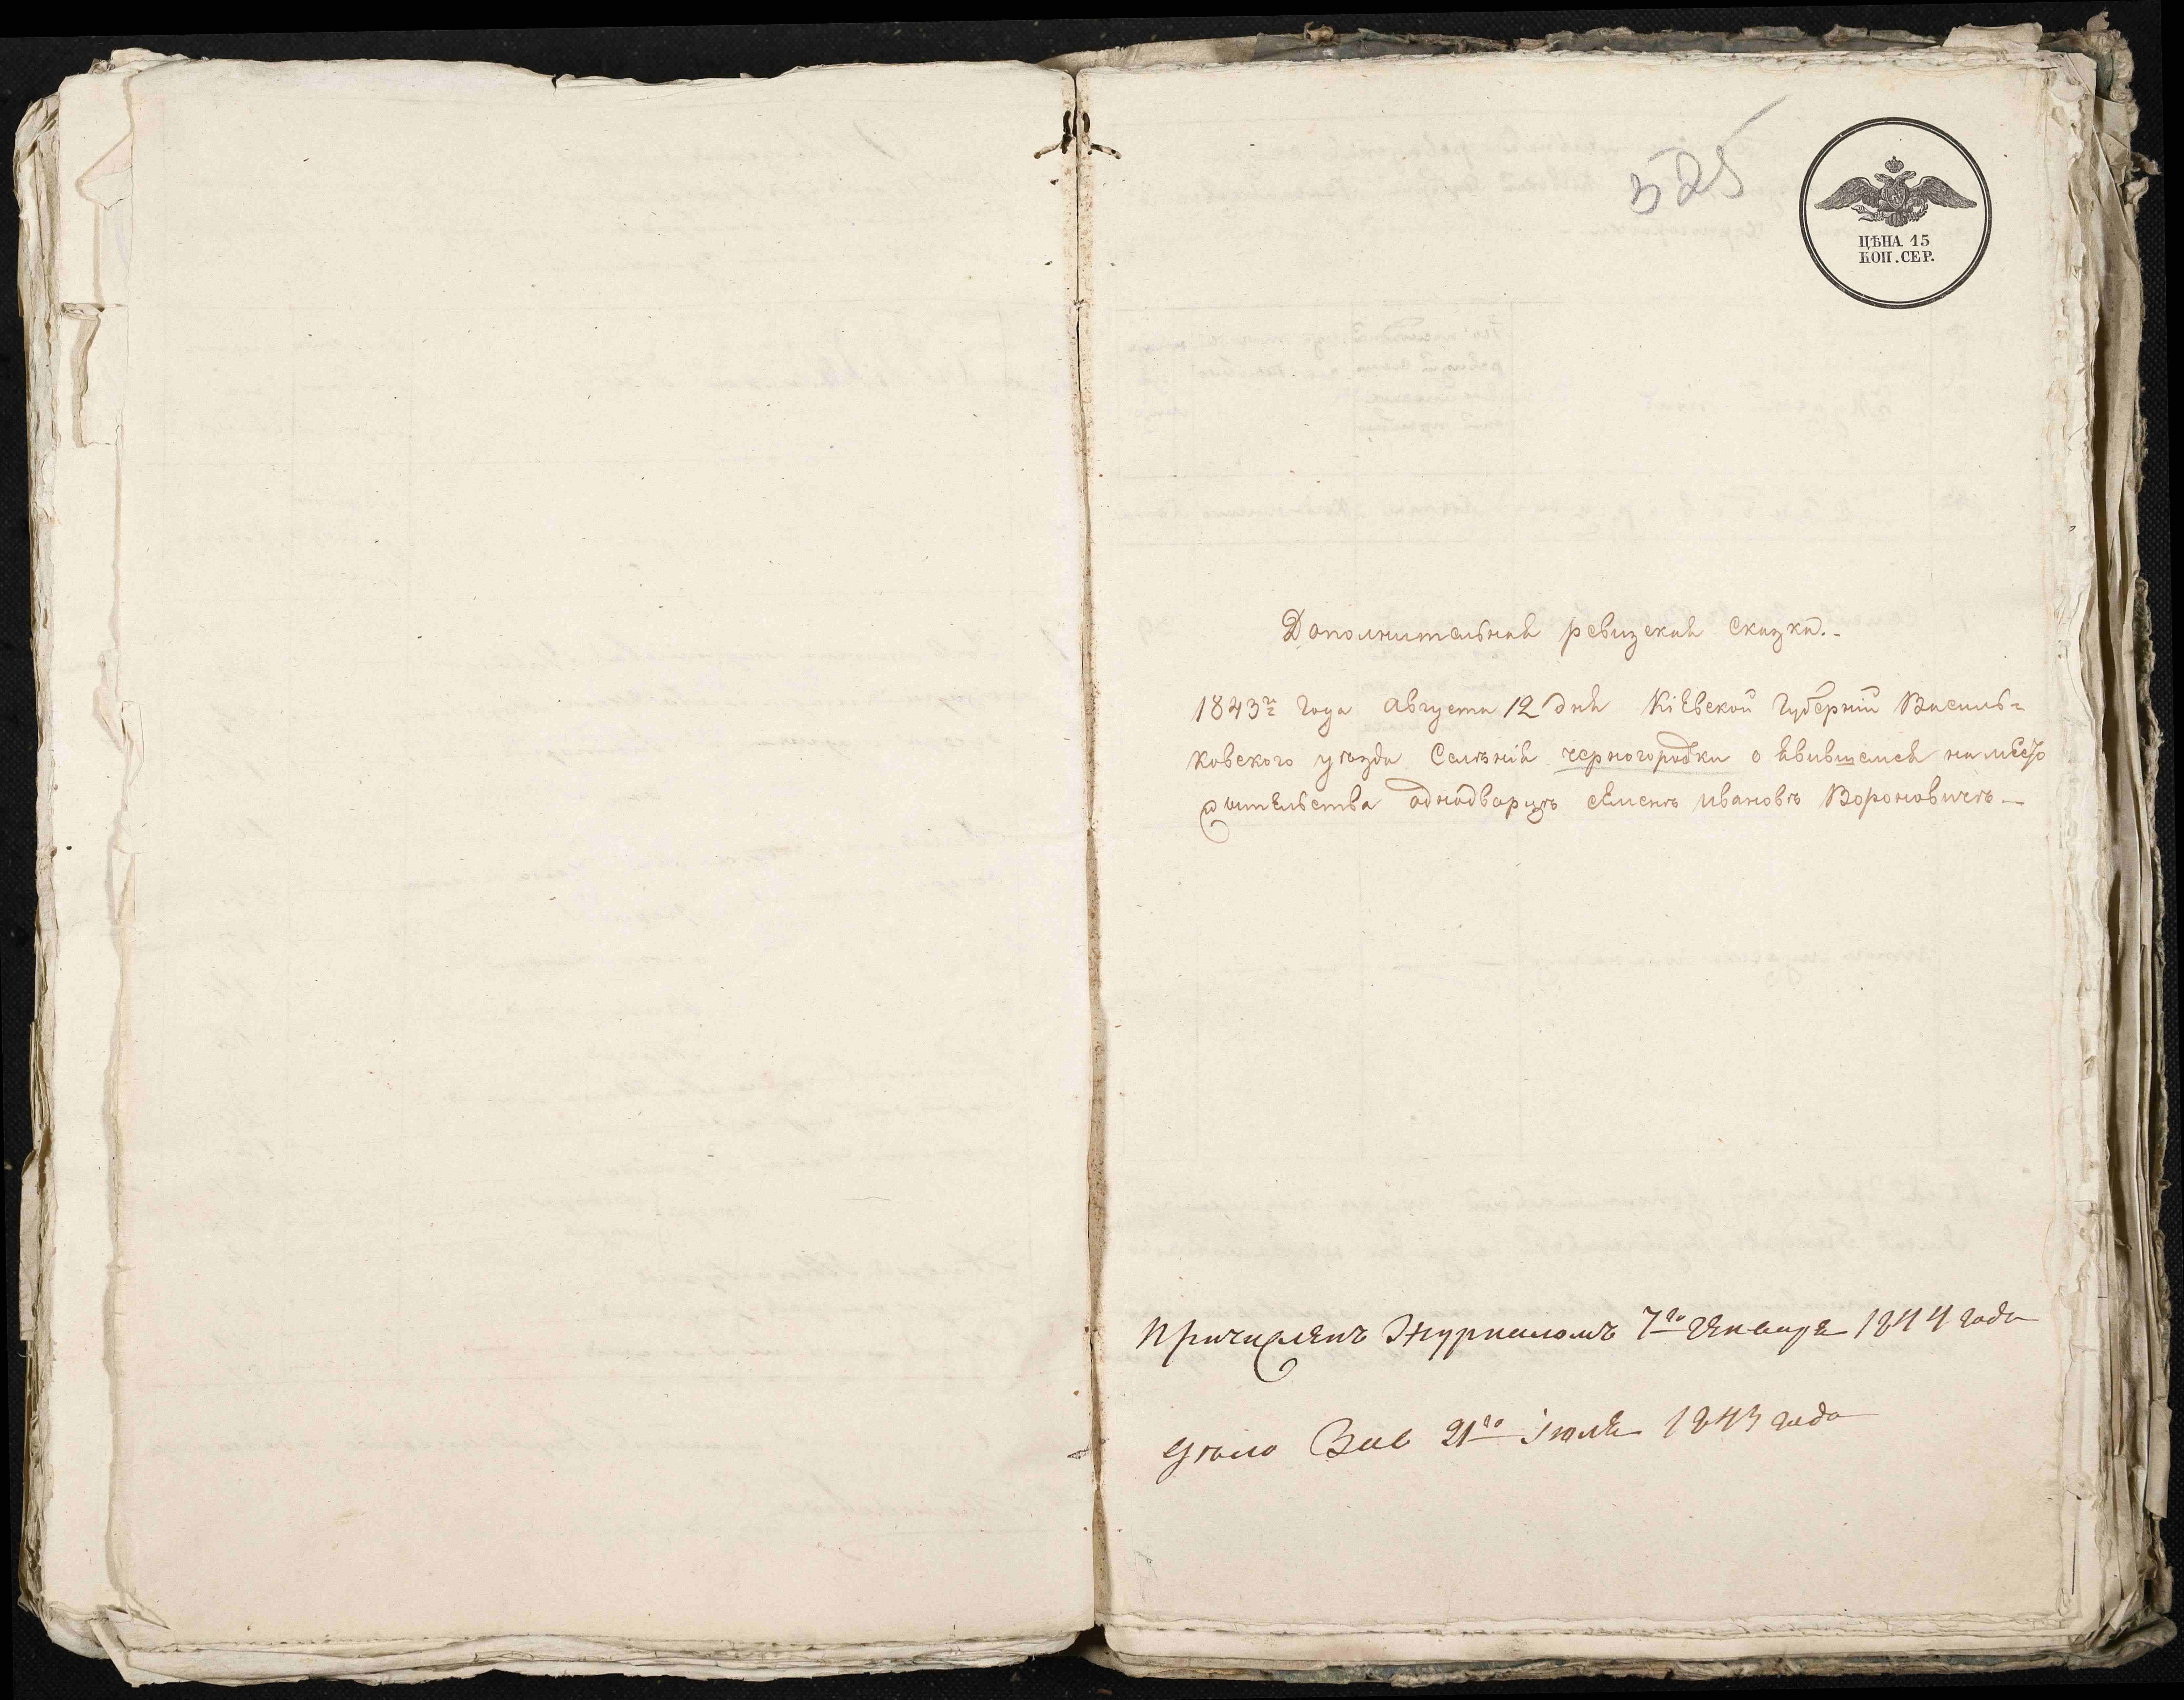 525
ЦѢНА 15
КОП. СЕР.
Дополнительная ревизская сказка.-
1843го года августа 12 дня Кіевской губерніи Василь=
ковского уѣзда Селѣнія черногородки о явившемся на место
жительства однодворцѣ семенъ ивановъ Вороновичъ —
Причисленъ Журналомъ 7го Генваря 1844 года
21го іюля 1843 года